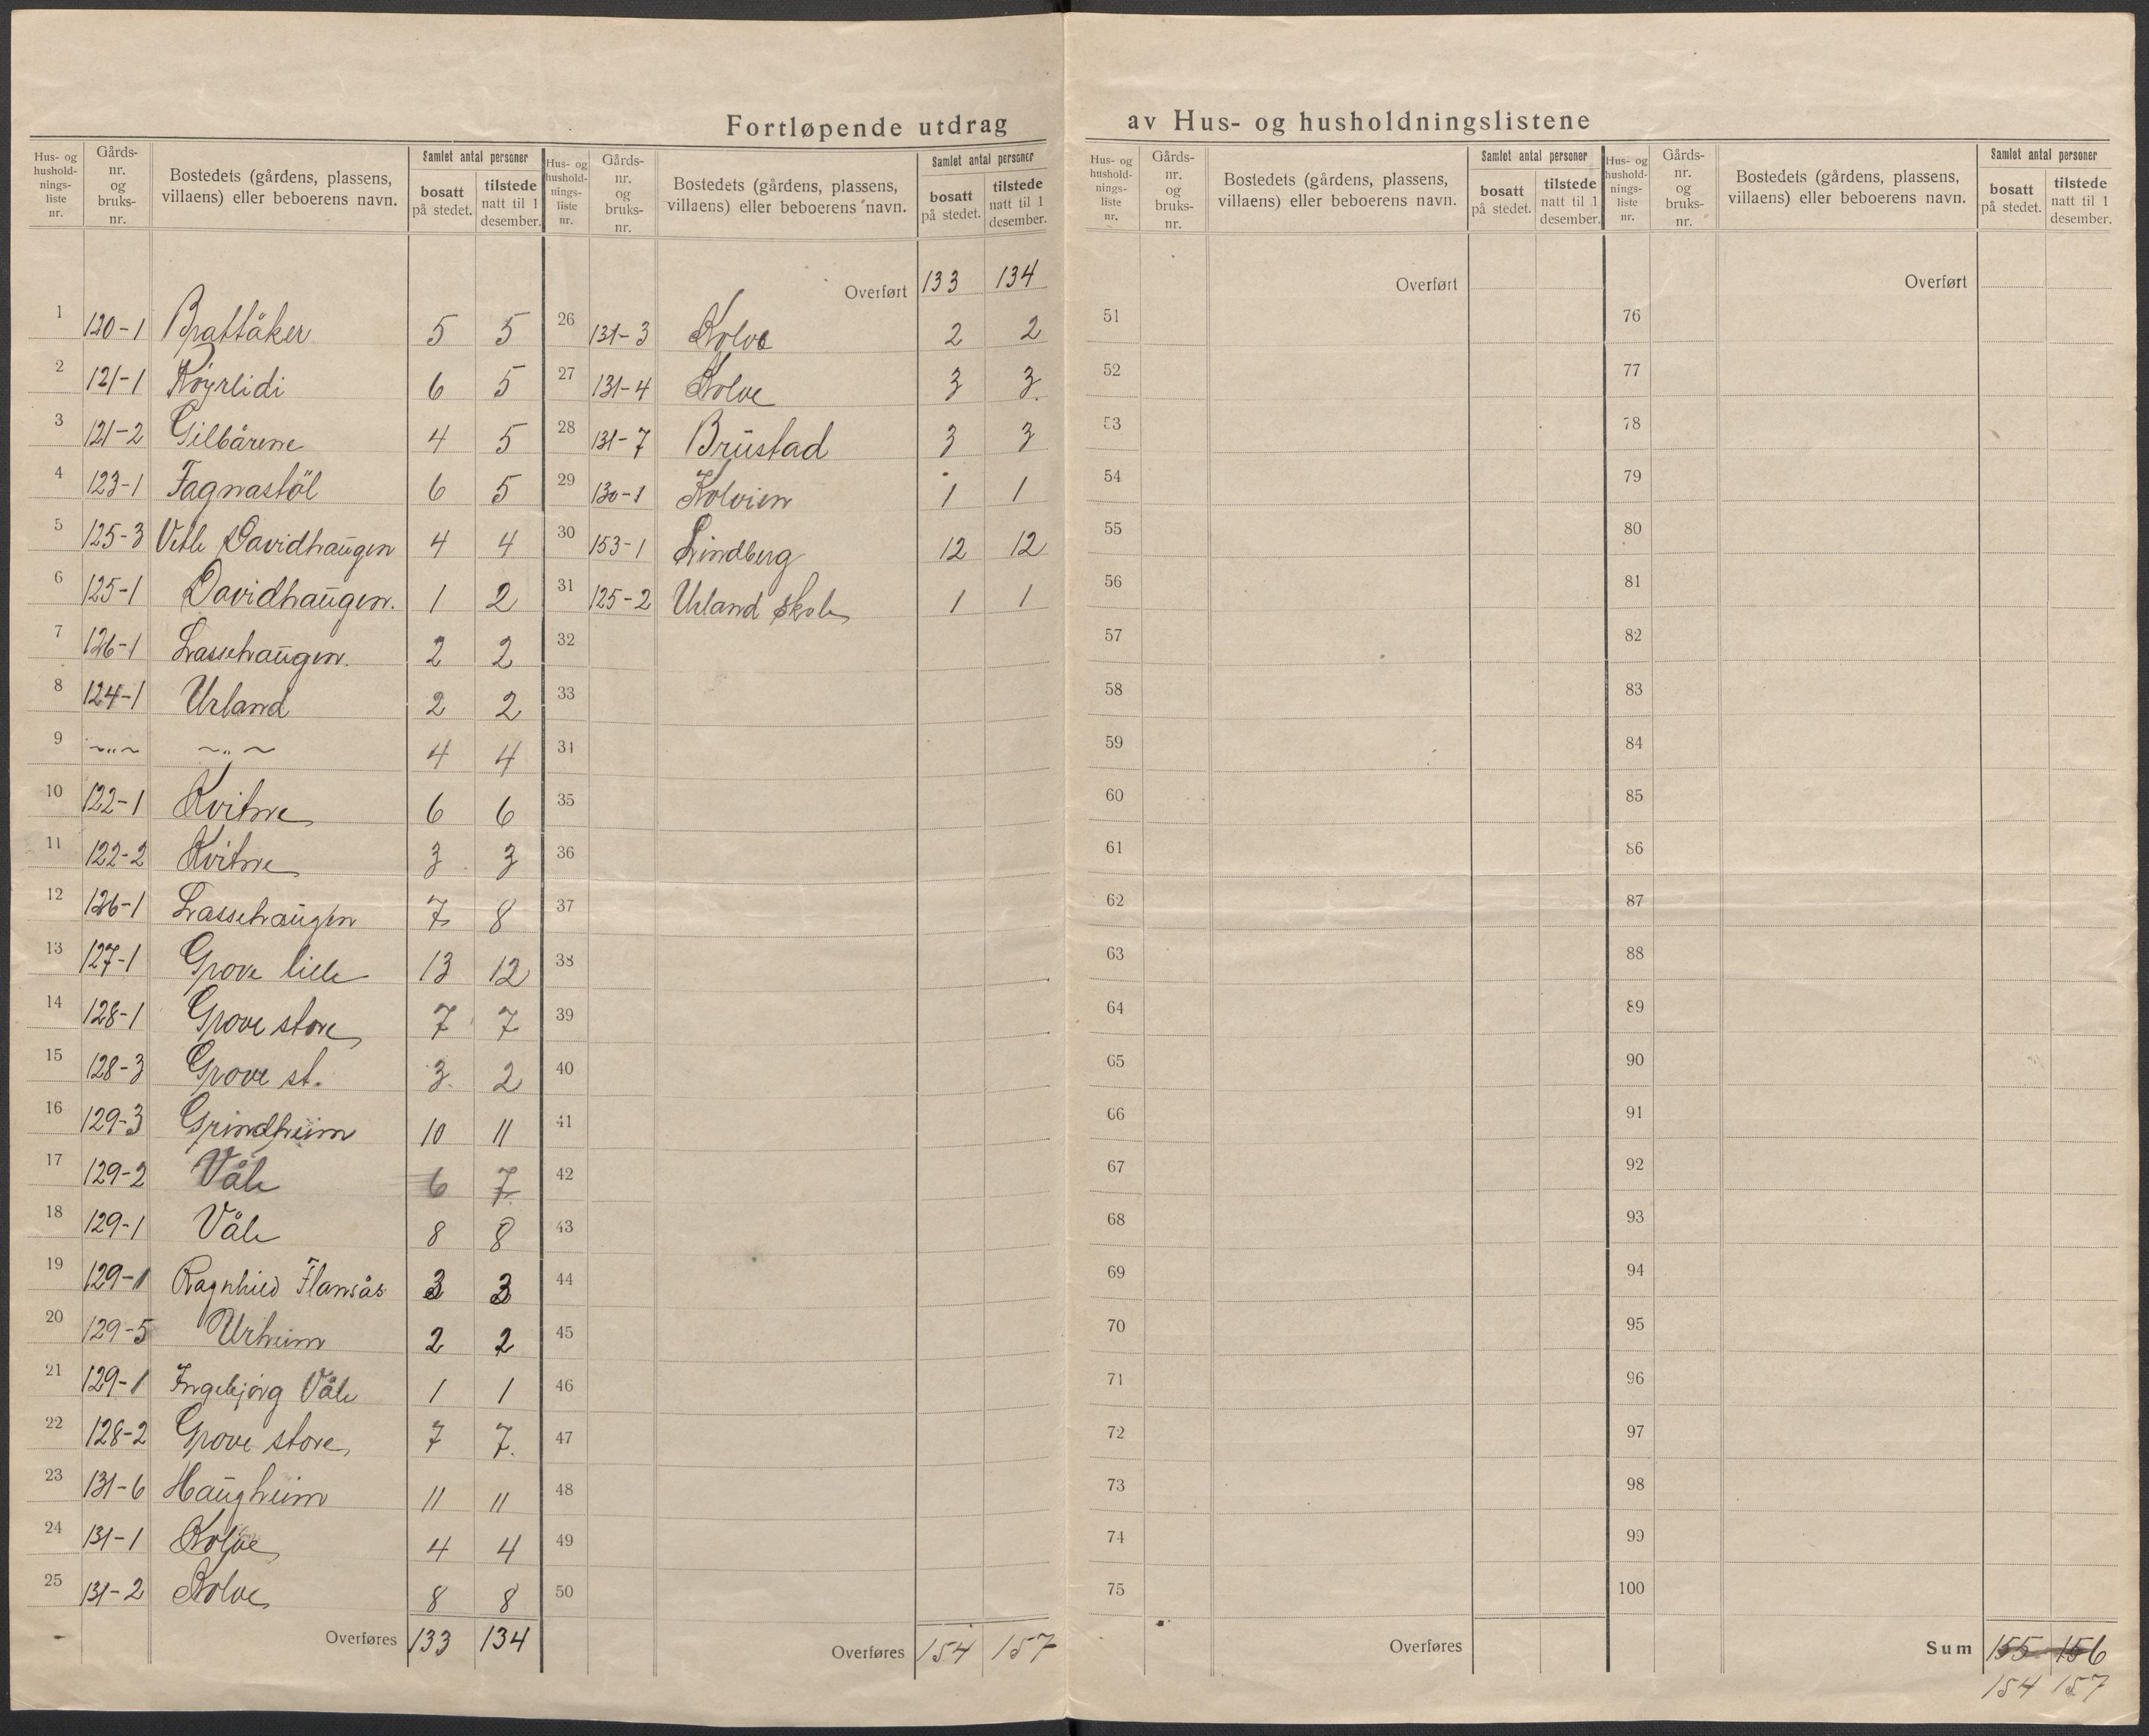 Fortløpende utdrag av Hus- og husholdningslistene
Hus- og hushold-nings-liste nr. | Gårds-nr. og bruks-nr. | Bostedets (gårdens, plassens, villaens) eller beboerens navn. | Samlet antal personer | bosatt på stedet. | tilstede natt til 1 desember.
1 120-1 Brattåker 5 5
2 121-1 Röyrlidi 6 5
3 121-2 Gilbårene 4 5
4 123-1 Fagnastöl 6 5
5 125-3 Vetle Davidhaugen 4 4
6 125-1 Davidhaugen. 1 2
7 126-1 Lassehaugen. 2 2
8 124-1 Urland 2 2
9 ~"~ ~"~ 4 4
10 122-1 Kvitne 6 6
11 122-2 Kvitne 3 3
12 126-1 Lassehaugen 7 8
13 127-1 Grove lille 13 12
14 128-1 Grove store 7 7
15 128-3 Grove st. 3 2
16 129-3 Grindheim 10 11
17 129-2 Våle 6 7
18 129-1 Våle 8 8
19 129-1 Ragnhild Flamsås 3 3
20 129-5 Urheim 2 2
21 129-1 Ingebjörg Våle 1 1
22 128-2 Grove store 7 7.
23 131-6 Haugheim 11 11
24 131-1 Kolve 4 4
25 131-2 Kolve 8 8
Overføres 133 134
Hus- og hushold-nings-liste nr. | Gårds-nr. og bruks-nr. | Bostedets (gårdens, plassens, villaens) eller beboerens navn. | Samlet antal personer | bosatt på stedet. | tilstede natt til 1 desember.
Overført 133 134
26 131-3 Kolve 2 2
27 131-4 Kolve 3 3.
28 131-7 Brustad 3 3
29 130-1 Kolvien 1 1
30 153-1 Lindberg 12 12
31 125-2 Urland skole 1 1
32
33
34
35
36
37
38
39
40
41
42
43
44
45
46
47
48
49
50
Overføres 154 157
Hus- og hushold-nings-liste nr. | Gårds-nr. og bruks-nr. | Bostedets (gårdens, plassens, villaens) eller beboerens navn. | Samlet antal personer | bosatt på stedet. | tilstede natt til 1 desember.
Overført
51
52
53
54
55
56
57
58
59
60
61
62
63
64
65
66
67
68
69
70
71
72
73
74
75
Overføres
Hus- og hushold-nings-liste nr. | Gårds-nr. og bruks-nr. | Bostedets (gårdens, plassens, villaens) eller beboerens navn. | Samlet antal personer | bosatt på stedet. | tilstede natt til 1 desember.
Overført
76
77
78
79
80
81
82
83
84
85
86
87
88
89
90
91
92
93
94
95
96
97
98
99
100
Sum 155 156
154 157